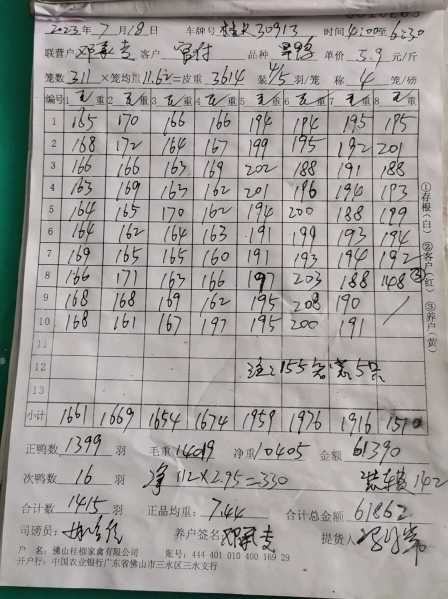 2023年7月18日 车牌号 桂K30913 时间 4:00至6:30
联营户 邓 客户 官付 品种 单价 5.9 元/斤
笼数 311 ×笼均 11.62 =皮重 3614 装 4/5 羽/笼 称 4 笼/磅
编号 1 重 2 重 3 重 4 重 5 重 6 重 7 重 8 重
1 165 170 166 166 194 194 195 195
2 168 172 164 167 199 195 192 201
3 166 166 163 169 202 188 191 188
4 163 169 163 162 201 196 194 193
5 164 165 170 162 194 200 188 199
6 164 162 164 163 191 199 193 194
7 169 165 165 160 191 193 194 192
8 166 171 163 166 197 203 188 148 ③
9 168 168 169 162 195 208 190
10 168 161 167 197 195 200 191
11
12 注:155 5只
13
小计 1661 1669 1654 1674 1959 1976 1916 1510
正鸭数 1399 羽 毛重 14019 净重 10405 金额 61390
次鸭数 16 羽 净112×2.95=330 装费142
合计数 1415 羽 正品均重: 7.44 合计总金额 61862
司磅员: 养户签名 邓 提货人
户 名:佛山桂柳家禽有限公司 账号:444 401 010 400 169 29
开户行:中国农业银行广东省佛山市三水区三水支行
①存根(白) ②客户(红) ③养户(黄)